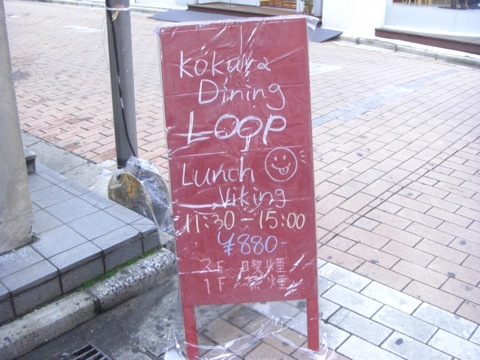 Kokura
Dining
LOOP
Lunch
Viking
11:30-15:00
¥880-
2F 喫煙
1F 禁煙